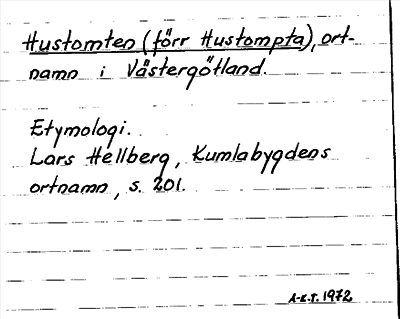 Hustomten (förr Hustompta), ort-
namn i Västergötland.
Etymologi.
Lars Hellberg, Kumlabygdens
ortnamn, s. 201.
A-K.T. 1972